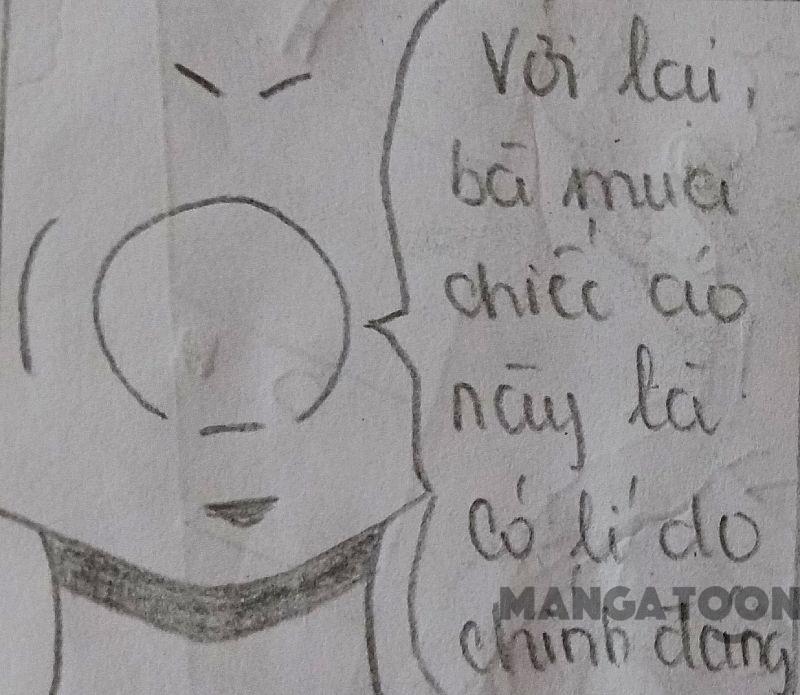 Với lại,
bà mua
chiếc áo
này là
có lí do
chính đáng
MANGATOON